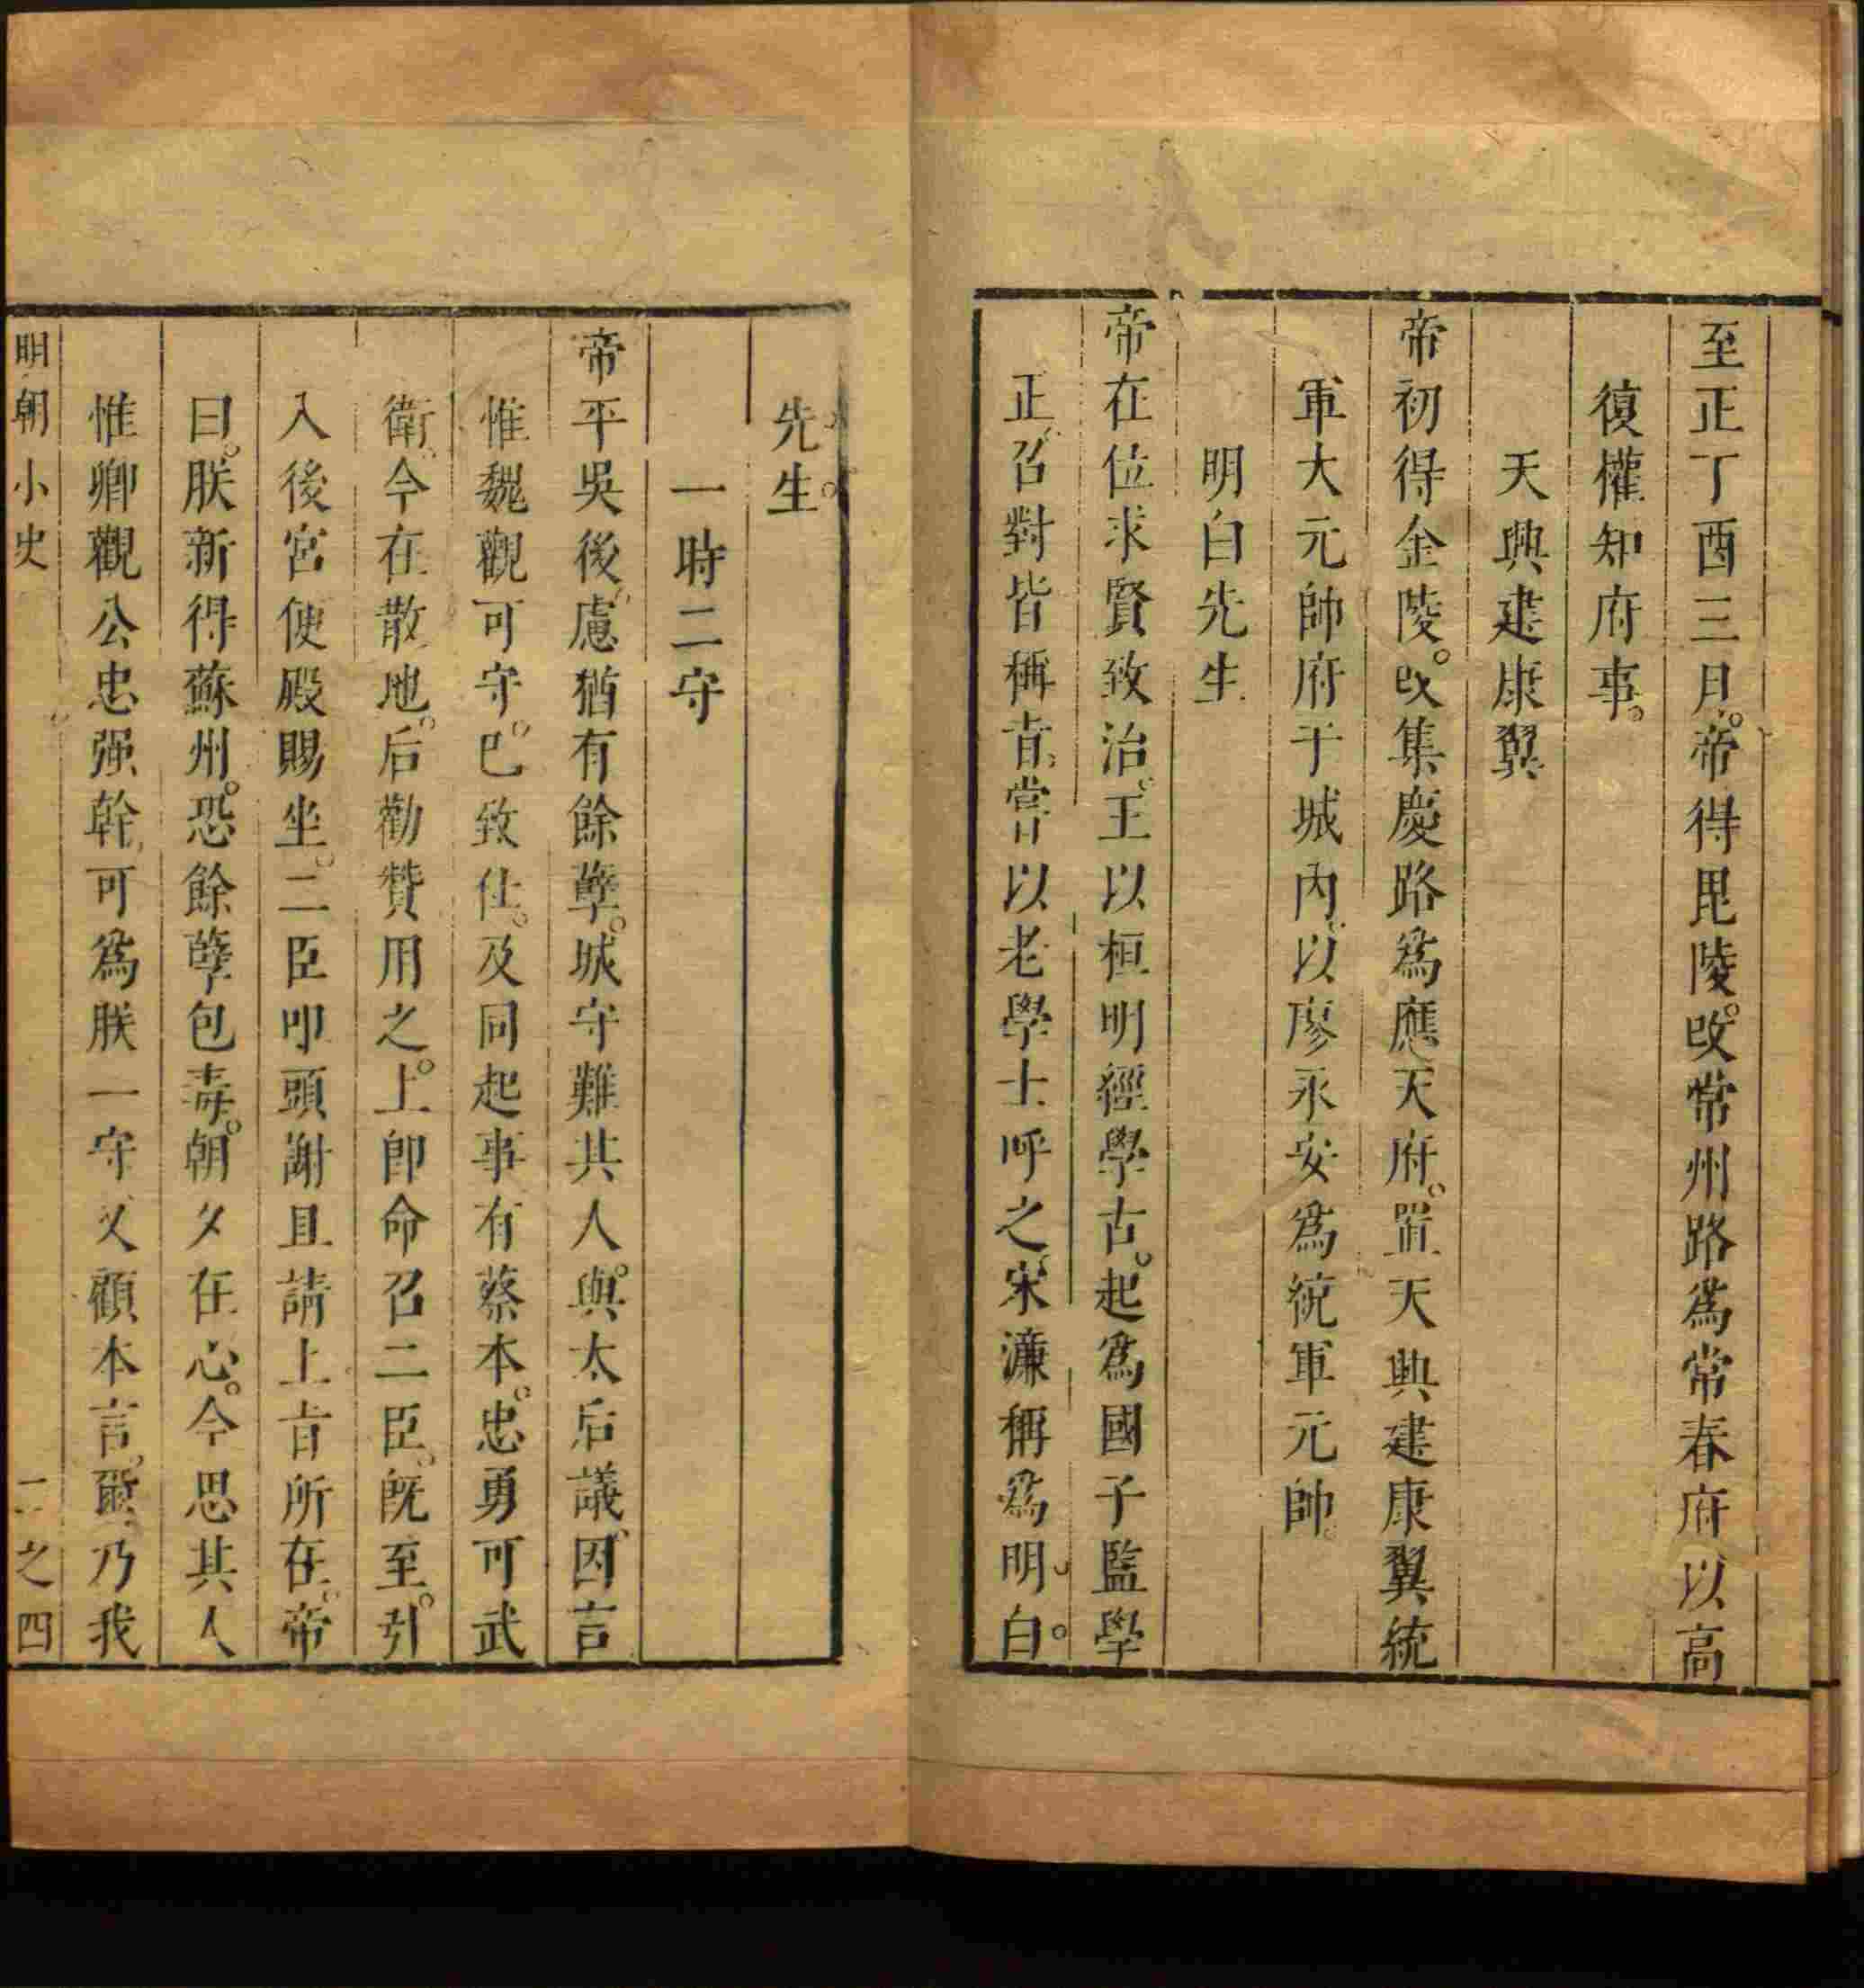 至正丁酉三月。帝得毘陵。改常州路為常春府以高
復權知府事。
天興建康翼
帝初得金陵。改集慶路為應天府。置天興建康翼統
軍大元帥府于城內。以廖永安為統軍元帥。
明白先生
帝在位求賢致治。王以桓明經學古。起為國子監學
正、召對皆稱旨、嘗以老學士呼之、宋濂稱為明白。
先生。
一時二守
帝平吳後、慮猶有餘孽。城守難其人。與太后議、因言
惟魏觀可守。已致仕。及同起事有蔡本。忠勇可武
衛、今在散地。后勸贊用之。上卽命召二臣。旣至。引
入後宮便殿賜坐。二臣叩頭謝且請上旨所在。帝
曰。朕新得蘇州。恐餘孽包毒。朝夕在心。今思其人
惟卿觀公忠强幹、可為朕一守、又顧本言。爾乃我
明朝小史
二之四